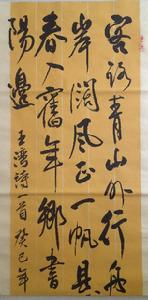 客路青山外行舟
岸闊風正一帆
春入舊年鄉書
陽邊
王灣詩一首 癸巳年